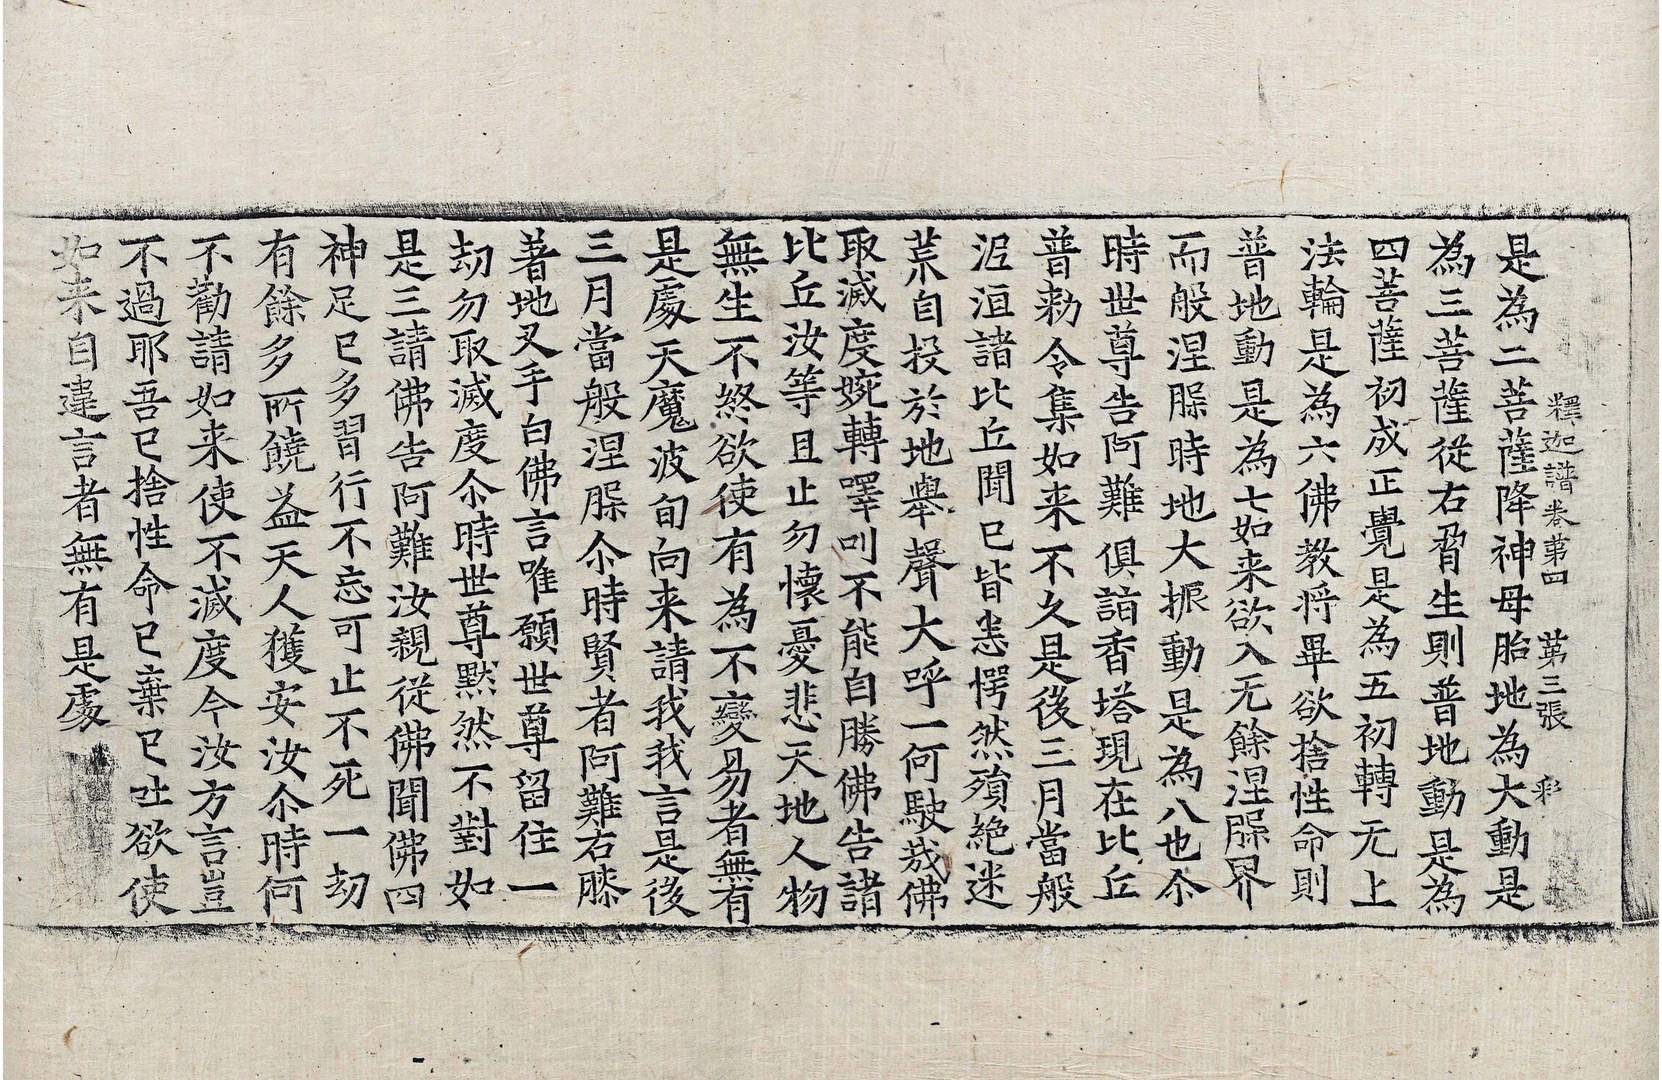 釋迦譜卷第四　第三張　彩
是為二菩薩降神母胎地為大動是
為三菩薩從右脅生則普地動是為
四菩薩初成正覺是為五初轉无上
法輪是為六佛教將畢欲捨性命則
普地動是為七如来欲入无餘涅槃界
而般涅槃時地大振動是為八也尒
時世尊告阿難俱詣香塔現在比丘
普勑令集如来不久是後三月當般
泥洹諸比丘聞已皆悉愕然殞絶迷
荒自投於地舉聲大呼一何駛哉佛
取滅度婉轉㘁叫不能自勝佛告諸
比丘汝等且止勿懷憂悲天地人物
無生不終欲使有為不變易者無有
是處天魔波旬向来請我我言是後
三月當般涅槃尒時賢者阿難右膝
著地叉手白佛言唯願世尊留住一
劫勿取滅度尒時世尊默然不對如
是三請佛告阿難汝親從佛聞佛四
神足已多習行不忘可止不死一劫
有餘多所饒益天人獲安汝尒時何
不勸請如来使不滅度今汝方言豈
不過耶吾已捨性命已棄已吐欲使
如来自違言者無有是處